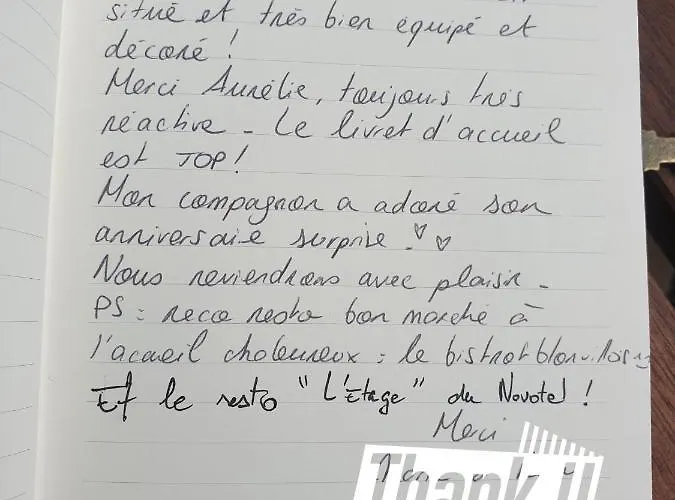 situé et très bien équipé et
décoré !
Merci Aurélie, toujours très
réactive - Le livret d'accueil
est TOP !
Mon compagnon a adoré son
anniversaire surprise ! ♡ ♡
Nous reviendrons avec plaisir -
PS : reco resto bon marché à
l'acceuil chaleureux : le bistrot
Et le resto "L'Etage" du Novotel !
Merci
Thank U